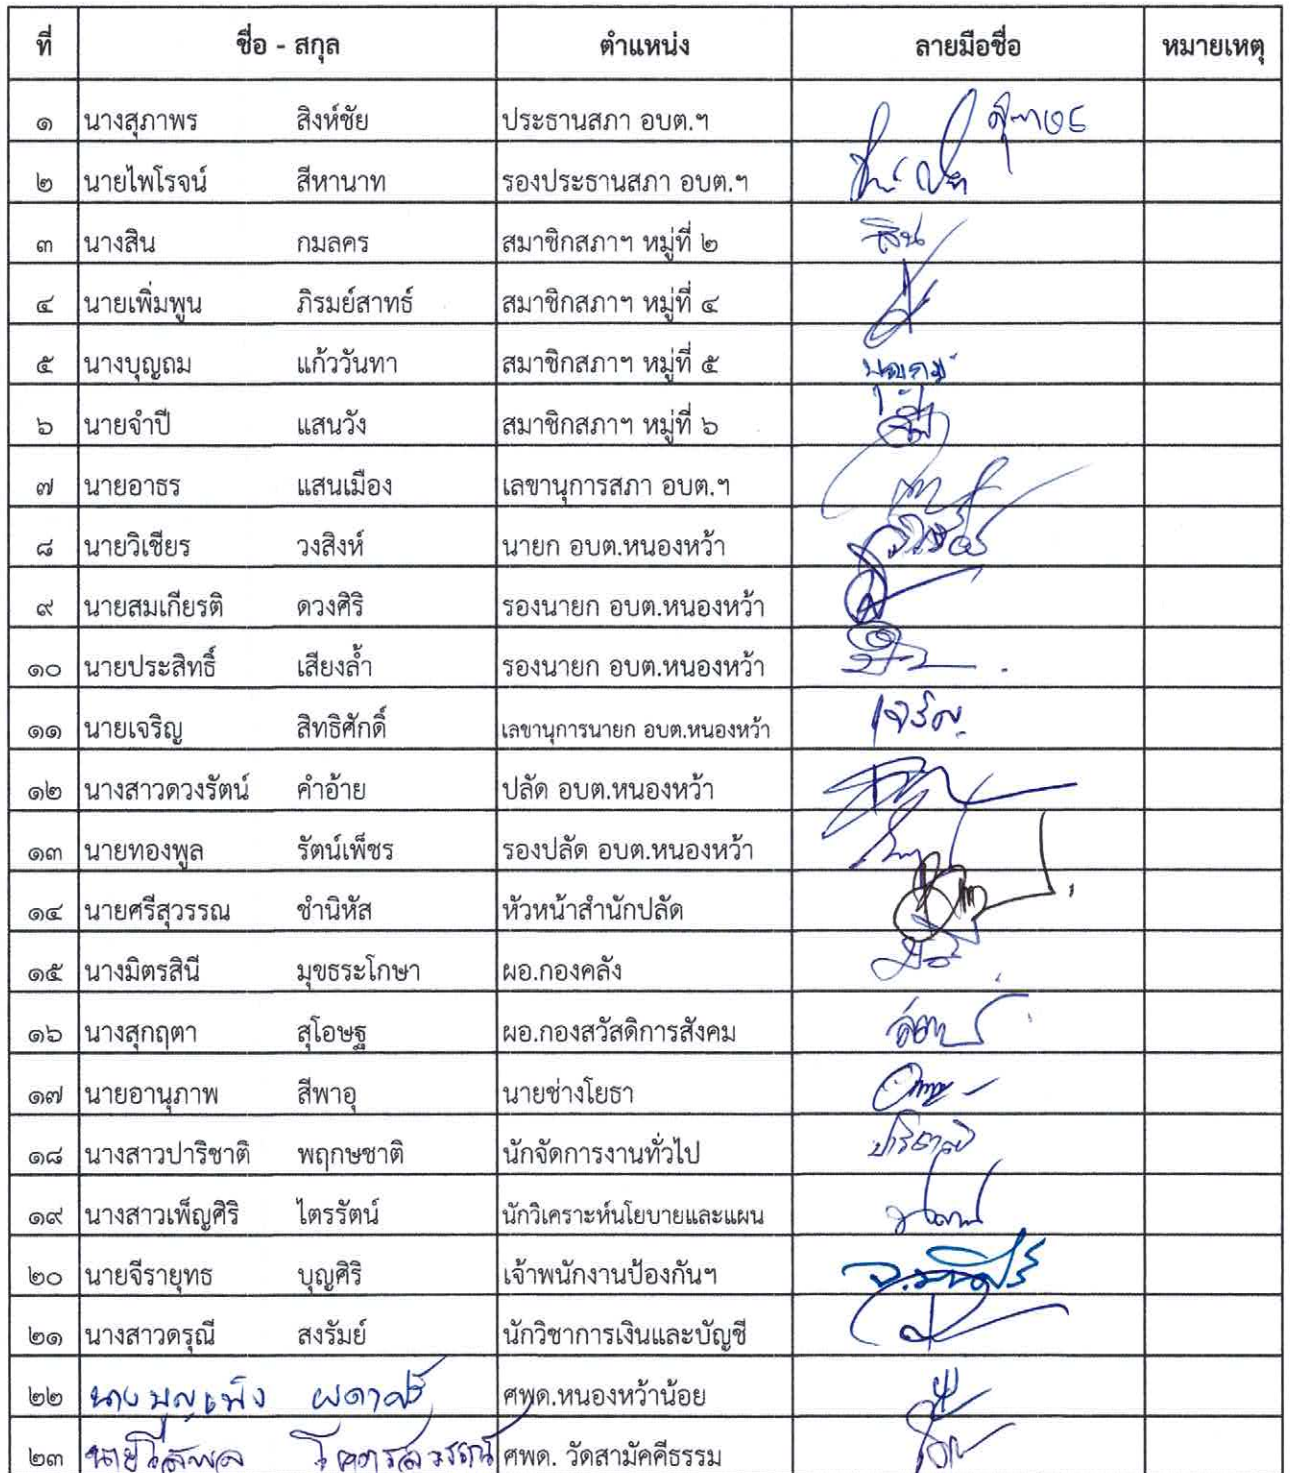 ที่ ชื่อ - สกุล ตำแหน่ง ลายมือชื่อ หมายเหตุ
๑ นางสุภาพร สิงห์ชัย ประธานสภา อบต.ฯ สุภาพร
๒ นายไพโรจน์ สีหานาท รองประธานสภา อบต.ฯ
๓ นางสิน กมลคร สมาชิกสภาฯ หมู่ที่ ๒ สิน
๔ นายเพิ่มพูน ภิรมย์สาทธ์ สมาชิกสภาฯ หมู่ที่ ๔
๕ นางบุญถม แก้ววันทา สมาชิกสภาฯ หมู่ที่ ๕
๖ นายจำปี แสนวัง สมาชิกสภาฯ หมู่ที่ ๖
๗ นายอาธร แสนเมือง เลขานุการสภา อบต.ฯ
๘ นายวิเชียร วงสิงห์ นายก อบต.หนองหว้า
๙ นายสมเกียรติ ดวงศิริ รองนายก อบต.หนองหว้า
๑๐ นายประสิทธิ์ เสียงล้ำ รองนายก อบต.หนองหว้า
๑๑ นายเจริญ สิทธิศักดิ์ เลขานุการนายก อบต.หนองหว้า เจริญ
๑๒ นางสาวดวงรัตน์ คำอ้าย ปลัด อบต.หนองหว้า
๑๓ นายทองพูล รัตน์เพ็ชร รองปลัด อบต.หนองหว้า
๑๔ นายศรีสุวรรณ ชำนิหัส หัวหน้าสำนักปลัด
๑๕ นางมิตรสินี มุขธระโกษา ผอ.กองคลัง
๑๖ นางสุกฤตา สุโอษฐ ผอ.กองสวัสดิการสังคม
๑๗ นายอานุภาพ สีพาอุ นายช่างโยธา
๑๘ นางสาวปาริชาติ พฤกษชาติ นักจัดการงานทั่วไป ปาริชาติ
๑๙ นางสาวเพ็ญศิริ ไตรรัตน์ นักวิเคราะห์นโยบายและแผน
๒๐ นายจีรายุทธ บุญศิริ เจ้าพนักงานป้องกันฯ
๒๑ นางสาวดรุณี สงรัมย์ นักวิชาการเงินและบัญชี
๒๒ นางบุญเพ็ง ศพด.หนองหว้าน้อย
๒๓ ศพด. วัดสามัคคีธรรม